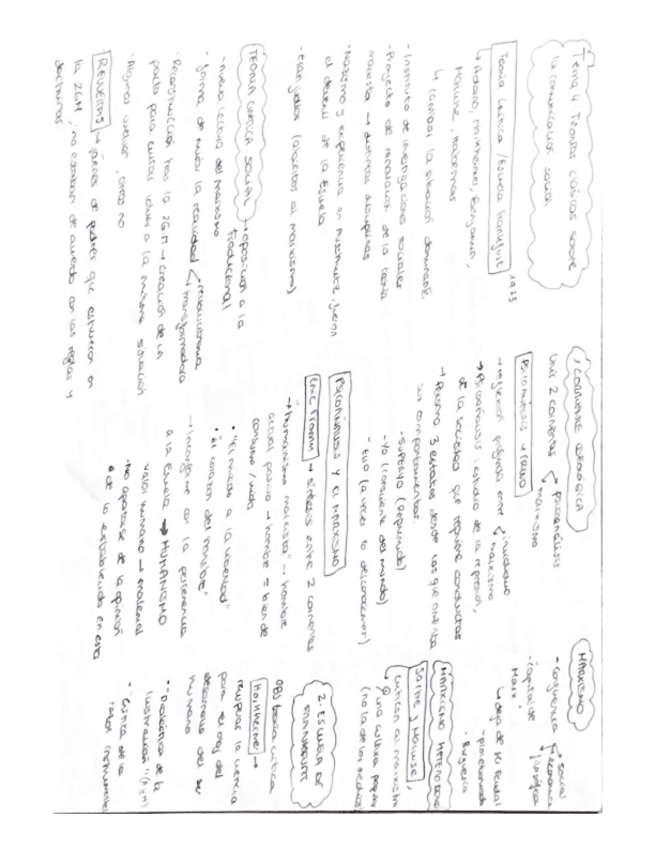 Tema 4 Teorías clásicas sobre
la comunicación social
Teoría Crítica / Escuela Frankfurt 1923
→ Adorno, Horkheimer, Benjamin,
Marcuse, Habermas
↳ cambiar la situación dominante
- Instituto de investigaciones sociales
- Proyecto de renovación de la teoría
marxista → distintas disciplinas
- Nazismo y experiencia en Auschwitz
el devenir de la Escuela
- Eran judíos (abiertos al marxismo)
TEORIA CRITICA SOCIAL → oposición a la
tradicional
- nueva lectura del marxismo
- forma de mirar la realidad < revolucionaria
transformadora
- Reconstrucción tras la 2GM → creación de un
pacto para evitar volver a la misma situación
- Algunos otros no
REVUELTAS → jóvenes de que estuvieron en
la 2GM, no estaban de acuerdo con las reglas y
doctrinas
1 CORRIENTE IDEOLÓGICA
Une 2 corrientes < psicoanálisis
marxismo
PSICOANÁLISIS Y FREUD
→ reflexión profunda entre < individuo
marxismo
→ Psicoanálisis: estudio de la represión,
de la sociedad que requiere conductas
→ Persona 3 estados desde los que orienta
sus comportamientos:
- SUPERYO (Reprimido)
- YO (consciente del mundo)
- ELLO (a veces lo desconocemos)
PSICOANÁLISIS Y EL MARXISMO
ERIC FROMM → síntesis entre 2 corrientes
→ "humanismo marxista" → hombre
actual pasivo → hombre = bien de
consumo/moda
• "El miedo a la libertad"
• "el corazón del hombre"
→ Inconforme con la pertenencia
a la Escuela → HUMANISMO
valor humano → material
- No apartarse de la opinión
de lo establecido en esta
MARXISMO
- consecuencia < social
económica
filosófica
- "Capital de
Marx"
↳ deja de ser feudal
- proletariado
- Burguesía
MARXISMO HETERODOXO
Sartre y Marcuse,
critican al marxista
una cultura popular
(no la de los medios)
2. ESCUELA DE
FRANKFURT
OBJ teoría crítica
Horkheimer →
recuperar la ciencia
para el obj del
desarrollo del ser
humano
- "Dialéctica de la
Ilustración" (A y H)
- "Crítica de la
razón instrumental